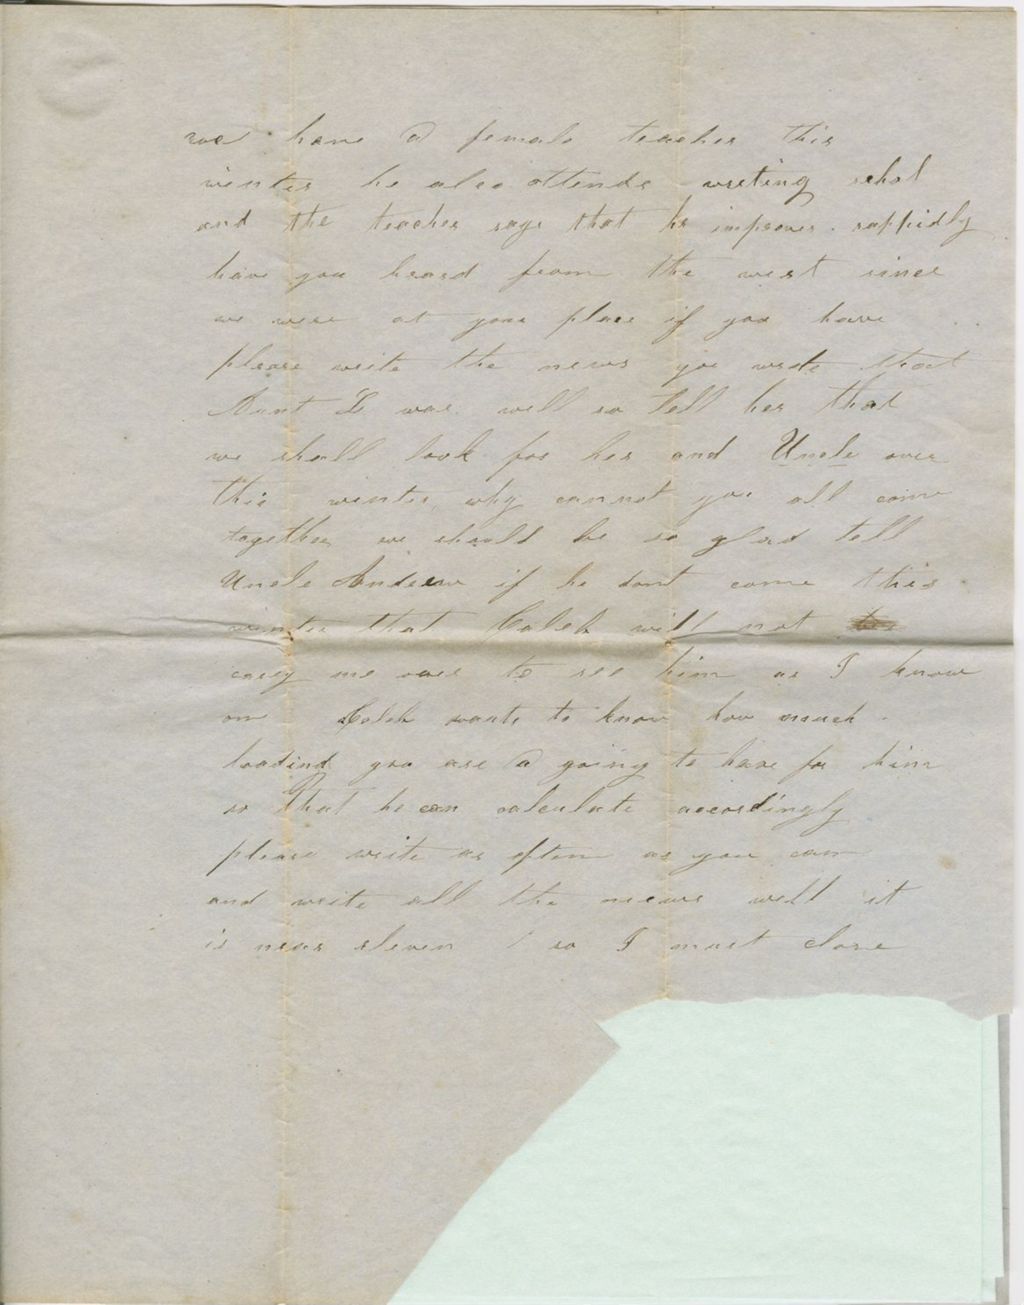 we have a female teacher this
winter he also attends writing schol
and the teacher says that he improves rappidly
have you heard from the west since
we were at your place if you have
please write the news you wrote that
Aunt L was well so tell her that
we shall look for her and Uncle over
this winter why cannot you all come
together we should be so glad tell
Uncle Andrew if he dont come this
winter that Caleb will not
carry me over to see him as I know
on Caleb wants to know how much
you are a going to have for him
so that he can calculate accordingly
please write as often as you can
and write all the news well it
is near eleven so I must close